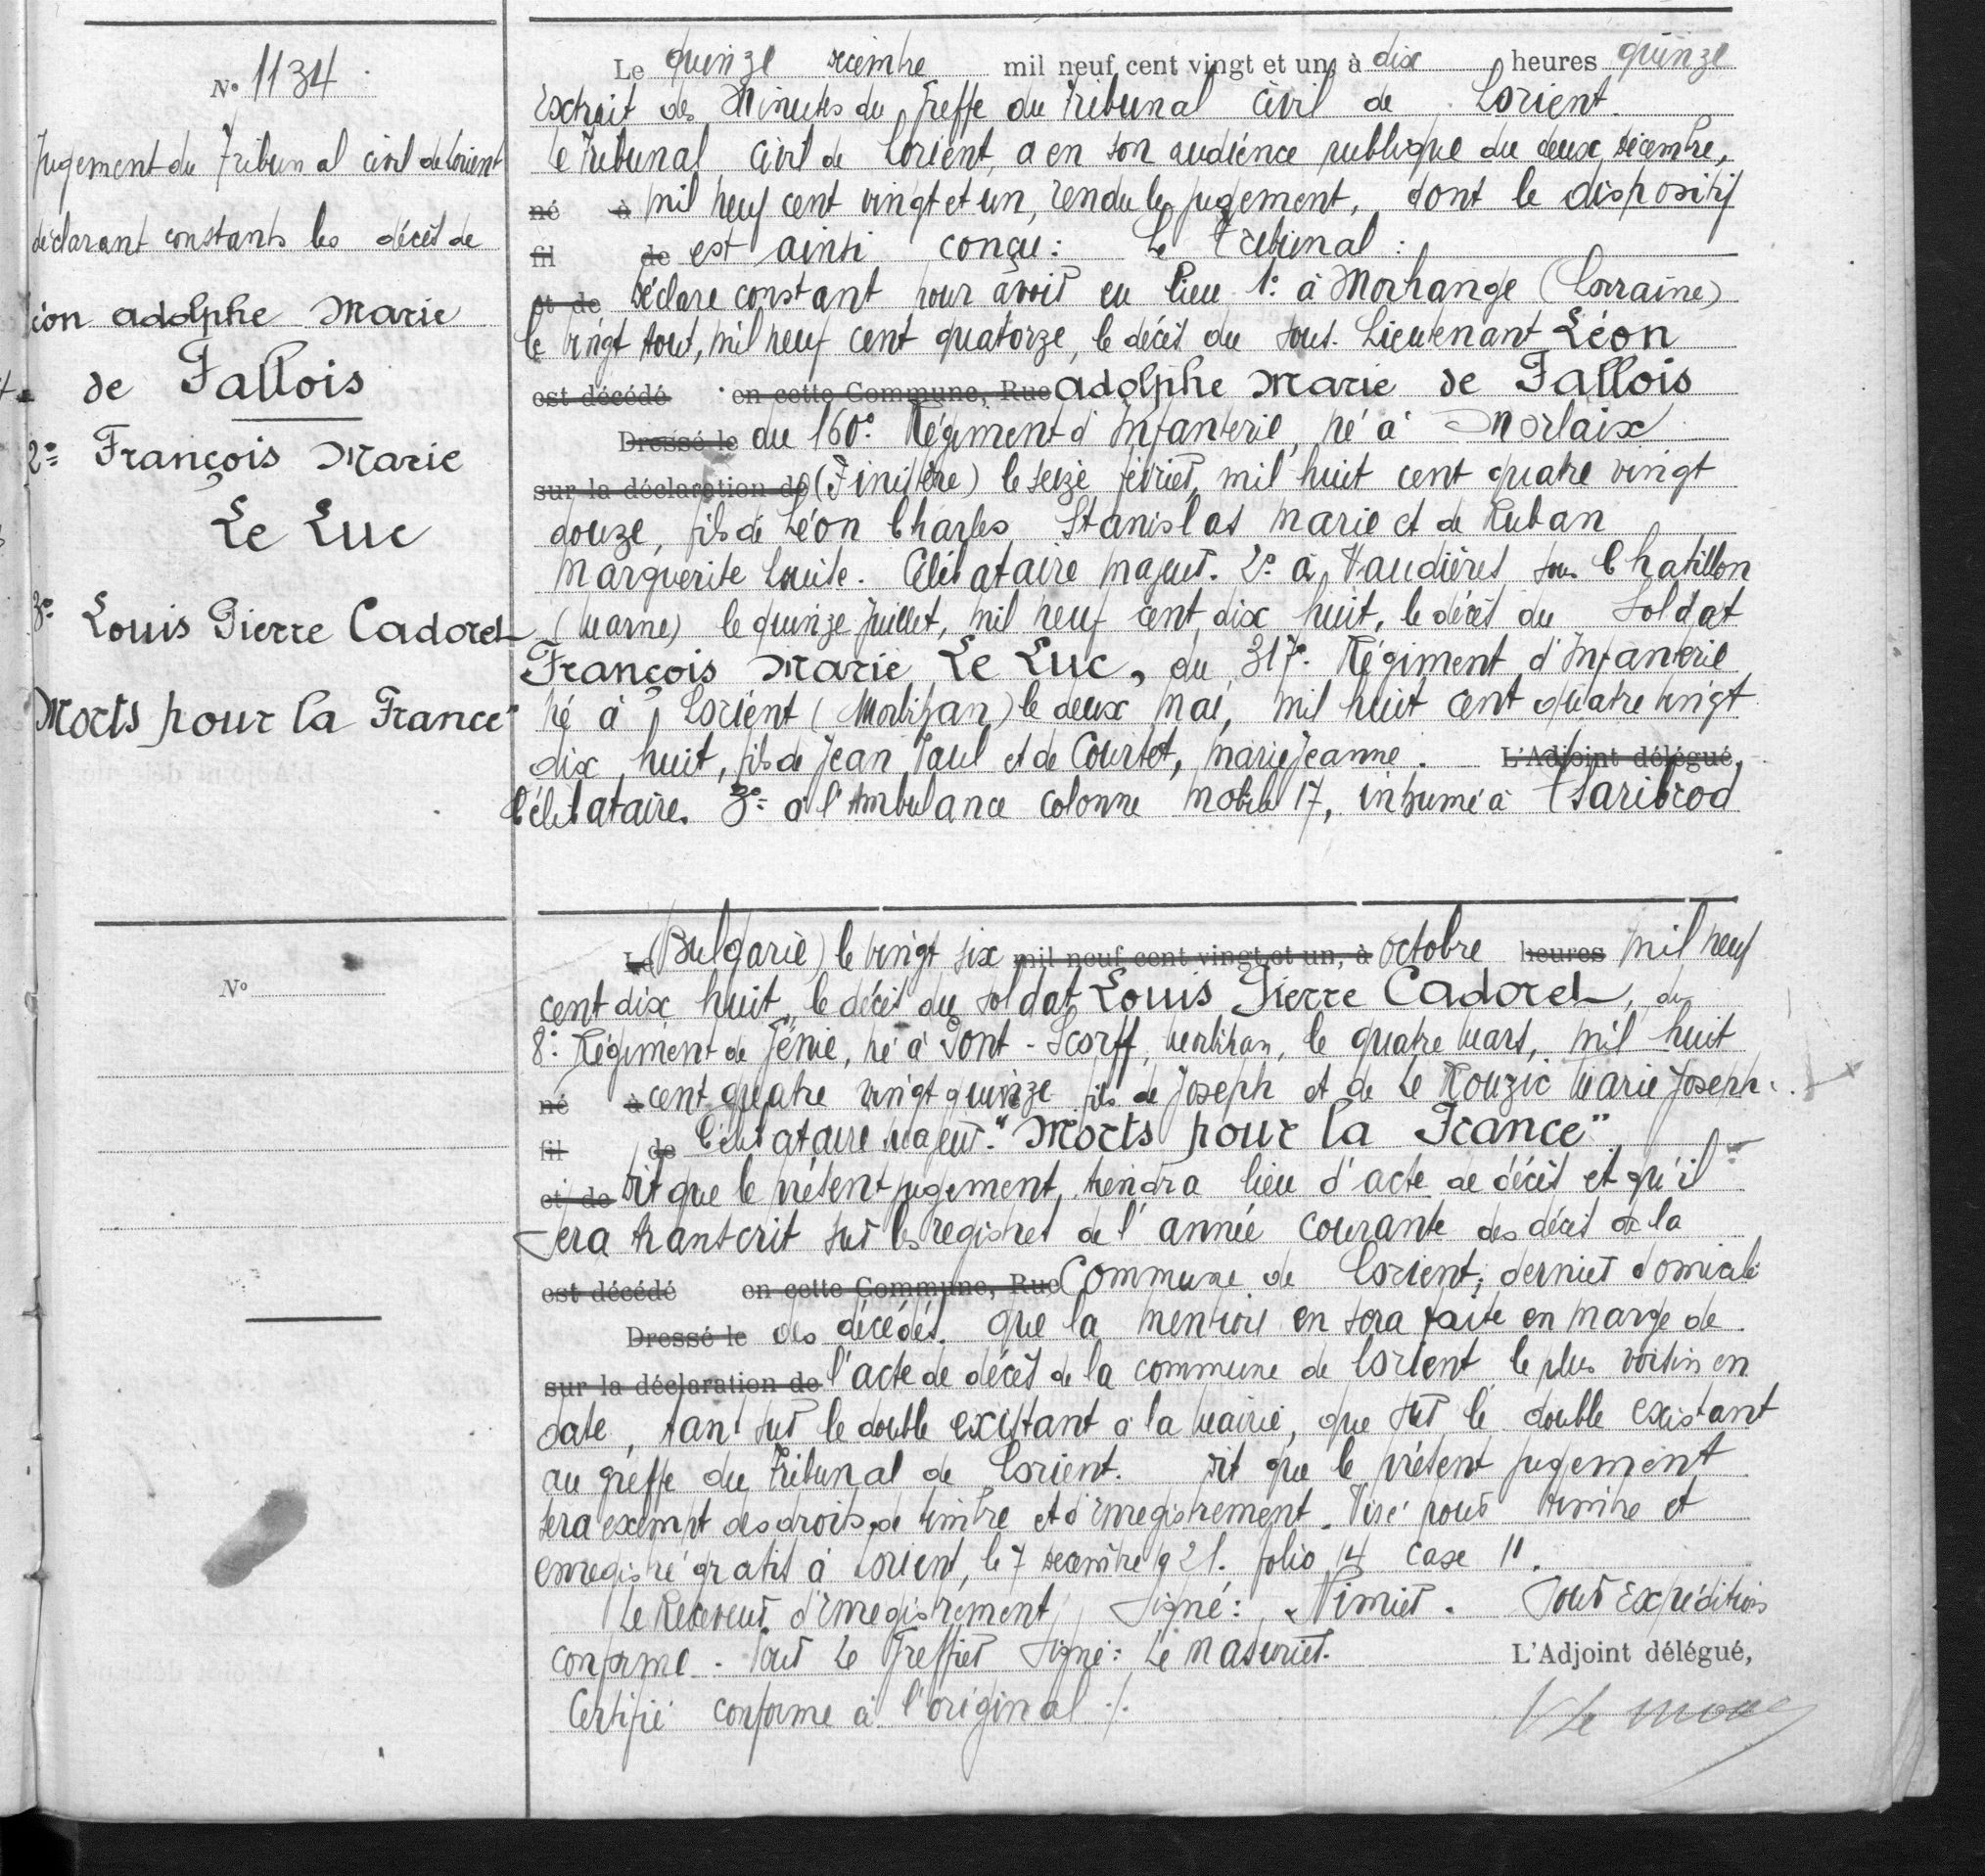 N° 1134
Jugement du Tribunal civil de Lorient
déclarant constants les décès de
Léon Adolphe Marie
de Fallois
2° François Marie
Le Luc
3° Louis Pierre Cadoret
Morts pour la France"
Le quinze décembre mil neuf cent vingt et un, à dix heures quinze
Extrait des Minutes du Greffe du Tribunal Civil de Lorient.
Le Tribunal Civil de Lorient, a en son audience publique du deux décembre,
né à mil neuf cent vingt et un, rendu le jugement, dont le dispositif
fil de est ainsi conçu : Le Tribunal :
et de Déclare constant pour avoir eu lieu 1° à Morhange (Lorraine)
le vingt Aout, mil neuf cent quatorze, le décès du sous-Lieutenant Léon
est décédé en cette Commune, Rue Adolphe Marie de Fallois
Dressé le du 160e Régiment d'Infanterie, né à Morlaix
sur la déclaration de (Finistère) le seize février, mil huit cent quatre vingt
douze, fils de Léon Charles Stanislas Marie et de Ruban
Marguerite Louise. Célibataire majeur. 2° à Vandières sous Chatillon
(Marne) le quinze Juillet, mil neuf cent dix huit, le décès du Soldat
François Marie Le Luc, du 317e Régiment d'Infanterie
né à Lorient (Morbihan) le deux mai, mil huit cent quatre vingt
dix huit, fils de Jean Paul et de Courtet, Marie Jeanne. L'Adjoint délégué,
Célibataire. 3° à l'Ambulance colonne mobile 17, inhumé à Tsaribrod
N°
Le (Bulgarie) le vingt six mil neuf cent vingt et un, à octobre heures mil neuf
cent dix huit, le décès du soldat Louis Pierre Cadoret, du
8e Régiment de Génie, né à Pont-Scorff, Morbihan, le quatre Mars, mil huit
né à cent quatre vingt quinze fils de Joseph et de Le Rouzic Marie Joseph.
fil de Célibataire majeur. "Morts pour la France"
et de Dit que le présent jugement, tiendra lieu d'acte de décès et qu'il
sera transcrit sur les registres de l'année courante des décès de la
est décédé en cette Commune, Rue Commune de Lorient, dernier domicile
Dressé le des décédés. Que la mention en sera faite en marge de
sur la déclaration de l'acte de décès de la commune de Lorient le plus voisin en
date, tant sur le double existant à la Mairie, que sur le double existant
au greffe du Tribunal de Lorient. Dit que le présent jugement
sera exempt des droits de timbre et d'enregistrement. Visé pour timbre et
enregistré gratis à Lorient, le 7 décembre 921. folio 14 case 11.
Le Receveur d'enregistrement signé : Pour Expédition
conforme. Pour Le Greffier signé : Le Masurier.
L'Adjoint délégué,
Certifié conforme à l'original ./.